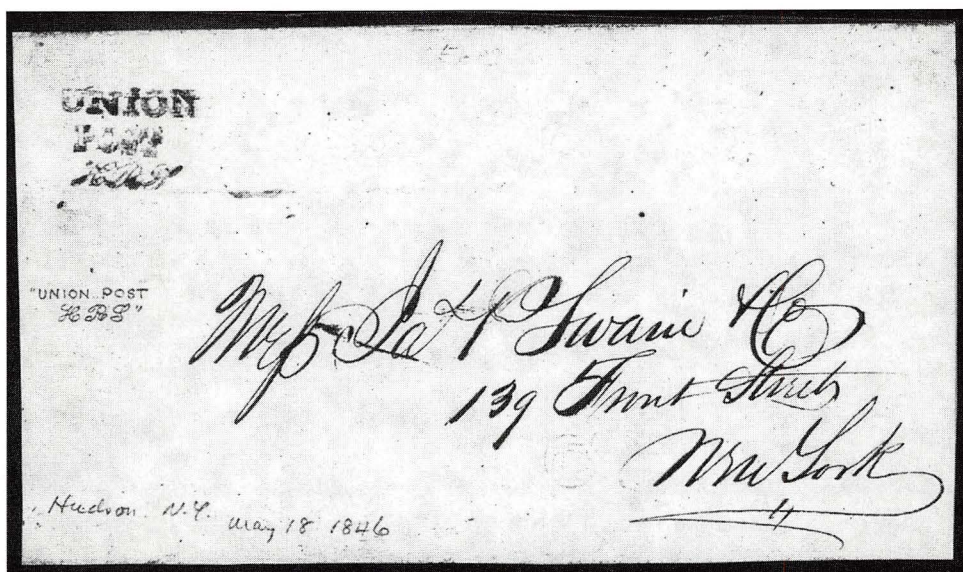 UNION
POST
"UNION POST
H R S"
Messrs Jas Swain & Co
139 Front Street
New York
Hudson N.Y. May 18 1846